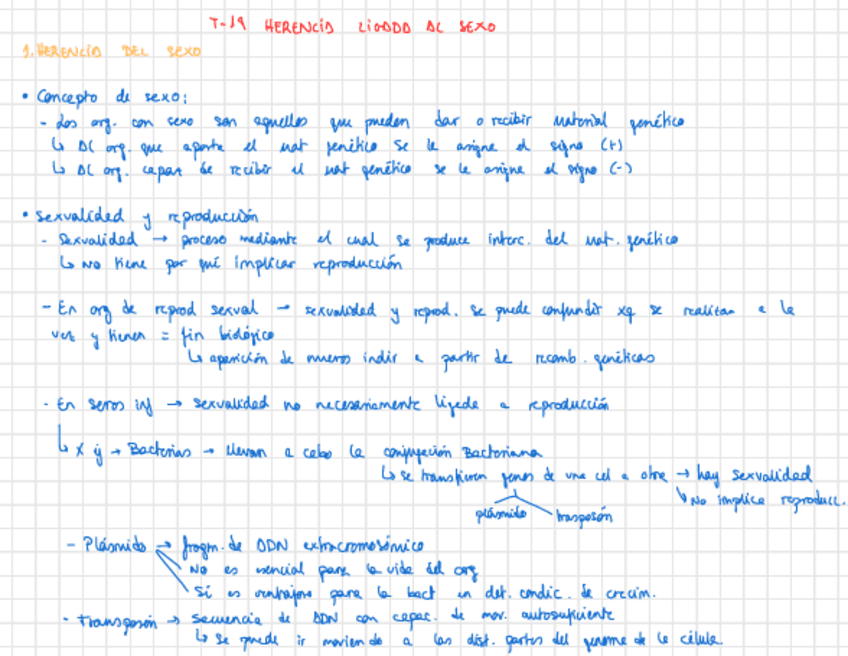 T-19 HERENCIA LIGADA AL SEXO
1. HERENCIA DEL SEXO
• Concepto de sexo:
- Los org. con sexo son aquellos que pueden dar o recibir material genético
↳ Al org. que aporta el mat genético se le asigna el signo (+)
↳ Al org. capaz de recibir el mat genético se le asigna el signo (-)
• Sexualidad y reproducción
- Sexualidad → proceso mediante el cual se produce interc. del mat. genético
↳ No tiene por qué implicar reproducción
- En org de reprod sexual → sexualidad y reprod. se puede confundir xq se realizan a la
vez y tienen = fin biológico
↳ aparición de nuevos indiv a partir de recomb. genéticas
- En seres inf → sexualidad no necesariamente ligada a reproducción
↳ x ej → Bacterias → llevan a cabo la conjugación Bacteriana
↳ se transfieren genes de una cel a otra → hay sexualidad
↘ No implica reproducc.
plásmido trasposón
- Plásmido → fragm. de ADN extracromosómico
No es esencial para la vida del org
Sí es ventajoso para la bact en det. condic. de crecim.
- Transposón → secuencia de ADN con capac. de mov. autosuficiente
↳ Se puede ir moviendo a las dist. partes del genoma de la célula.